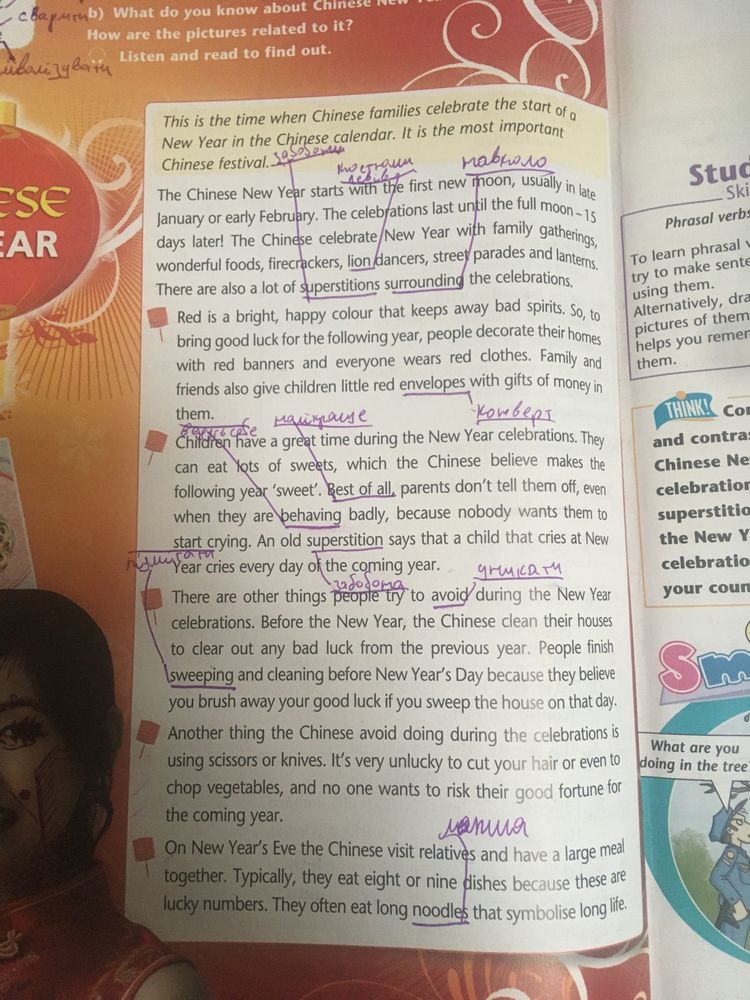 сварити
b) What do you know about Chinese New
How are the pictures related to it?
Listen and read to find out.
ESE
EAR
This is the time when Chinese families celebrate the start of a
New Year in the Chinese calendar. It is the most important
Chinese festival.
костюми
навколо
The Chinese New Year starts with the first new moon, usually in late
January or early February. The celebrations last until the full moon ~ 15
days later! The Chinese celebrate New Year with family gatherings,
wonderful foods, firecrackers, lion dancers, street parades and lanterns.
There are also a lot of superstitions surrounding the celebrations.
Red is a bright, happy colour that keeps away bad spirits. So, to
bring good luck for the following year, people decorate their homes
with red banners and everyone wears red clothes. Family and
friends also give children little red envelopes with gifts of money in
them.
найкраще
конверт
Children have a great time during the New Year celebrations. They
can eat lots of sweets, which the Chinese believe makes the
following year ‘sweet’. Best of all, parents don’t tell them off, even
when they are behaving badly, because nobody wants them to
start crying. An old superstition says that a child that cries at New
Year cries every day of the coming year.
підмітати
забобона
уникати
There are other things people try to avoid during the New Year
celebrations. Before the New Year, the Chinese clean their houses
to clear out any bad luck from the previous year. People finish
sweeping and cleaning before New Year’s Day because they believe
you brush away your good luck if you sweep the house on that day.
Another thing the Chinese avoid doing during the celebrations is
using scissors or knives. It’s very unlucky to cut your hair or even to
chop vegetables, and no one wants to risk their good fortune for
the coming year.
локшина
On New Year’s Eve the Chinese visit relatives and have a large meal
together. Typically, they eat eight or nine dishes because these are
lucky numbers. They often eat long noodles that symbolise long life.
Stud
Ski
Phrasal verbs
To learn phrasal v
try to make sente
using them.
Alternatively, dra
pictures of them
helps you remem
them.
THINK! Co
and contra
Chinese Ne
celebration
superstitio
the New Y
celebratio
your coun
Sm
What are you
doing in the tree?